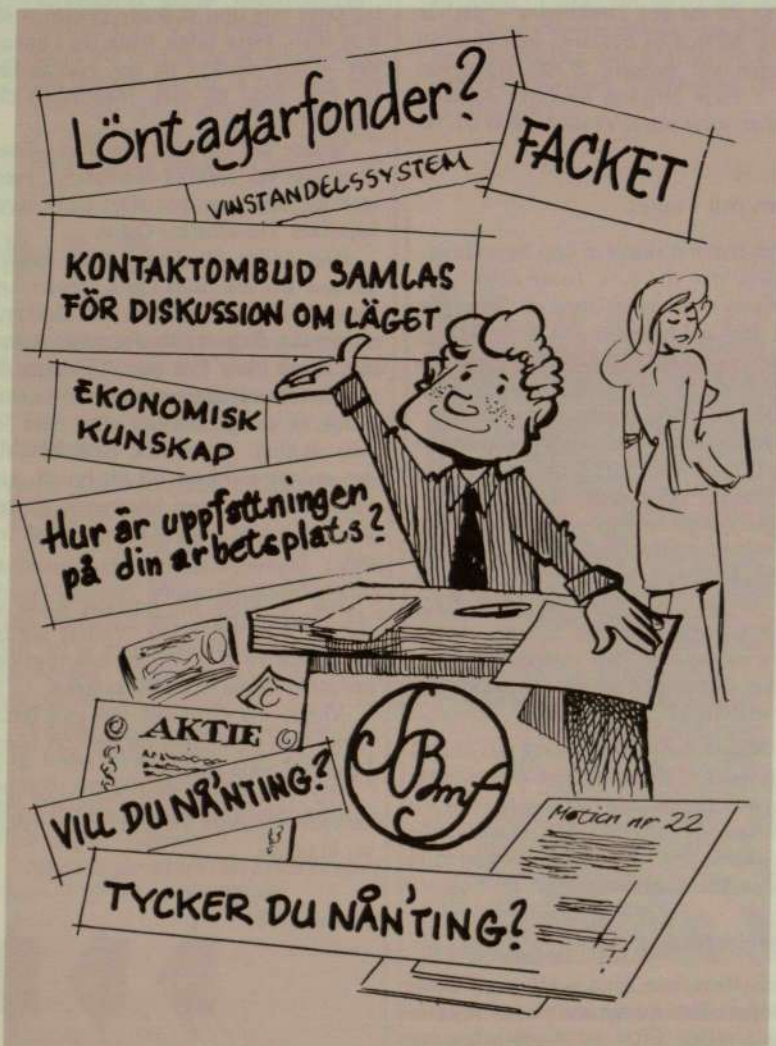 Löntagarfonder?
FACKET
VINSTANDELSSYSTEM
KONTAKTOMBUD SAMLAS
FÖR DISKUSSION OM LÄGET
EKONOMISK
KUNSKAP
Hur är uppfattningen
på din arbetsplats?
AKTIE
VILL DU NÅ'NTING?
SBmf
Motion nr 22
TYCKER DU NÅN'TING?